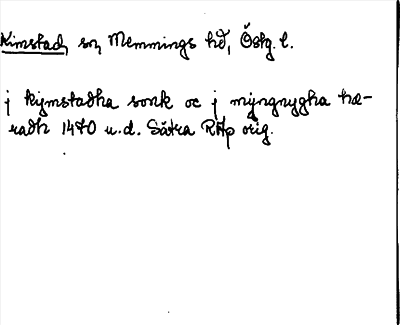 Kimstad, sn, Memmings hd, Östg. l.
j kymstadha sonk oc j myngnygha hæ-
radh 1470 u.d. Sätra RAp orig.